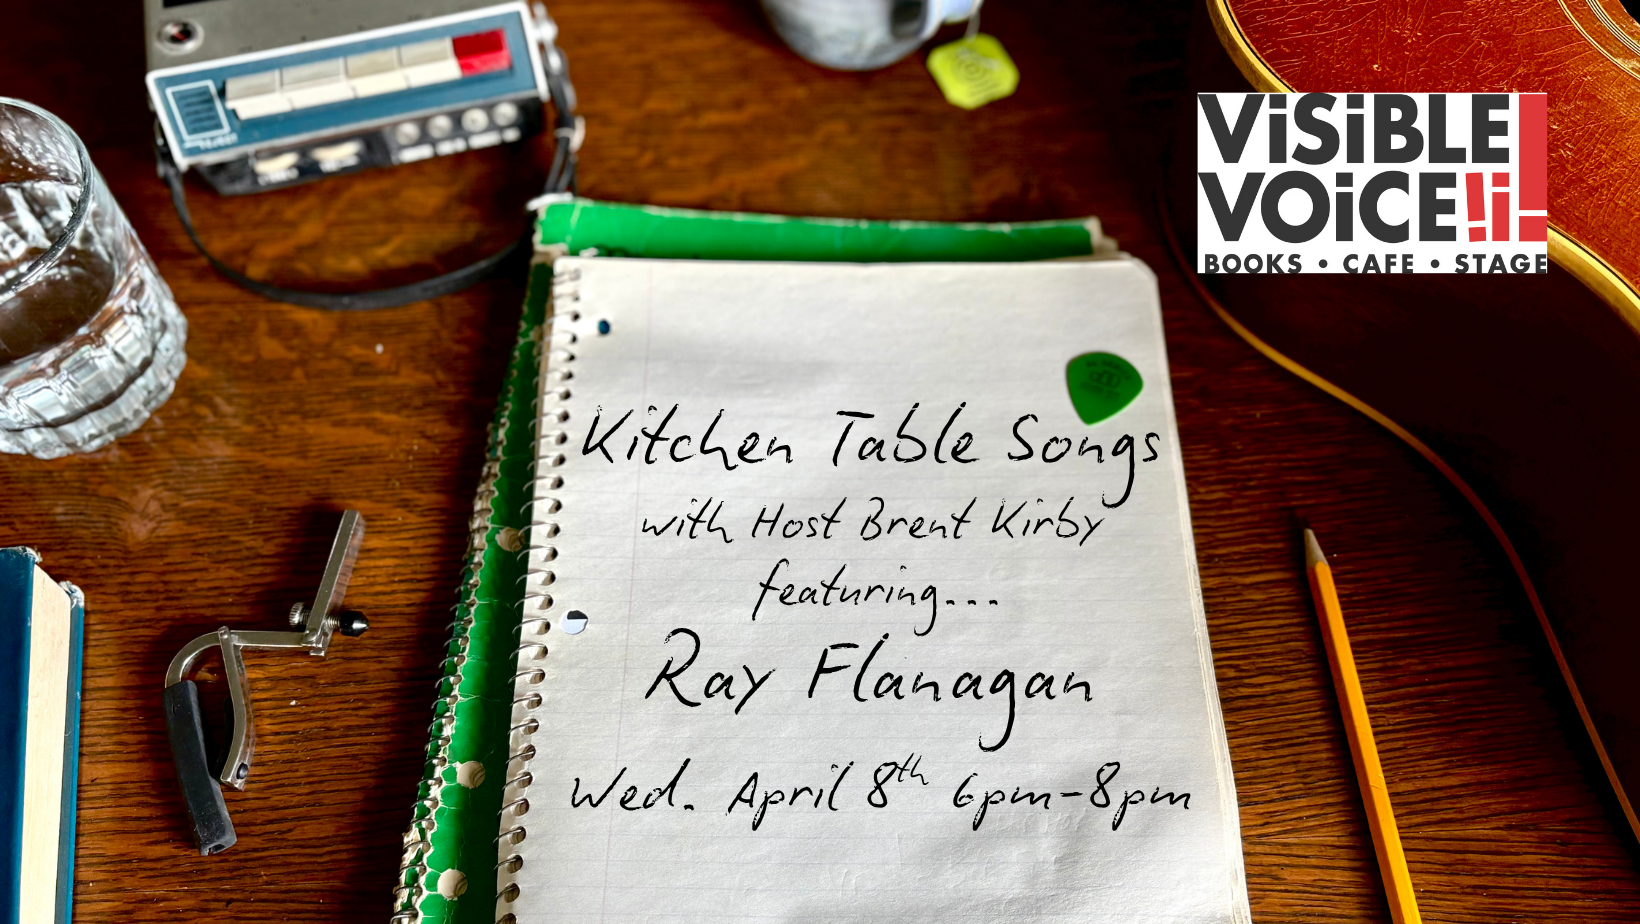 ViSiBLE
VOiCE!¡
BOOKS • CAFE • STAGE
Kitchen Table Songs
with Host Brent Kirby
featuring...
Ray Flanagan
Wed. April 8th 6pm-8pm